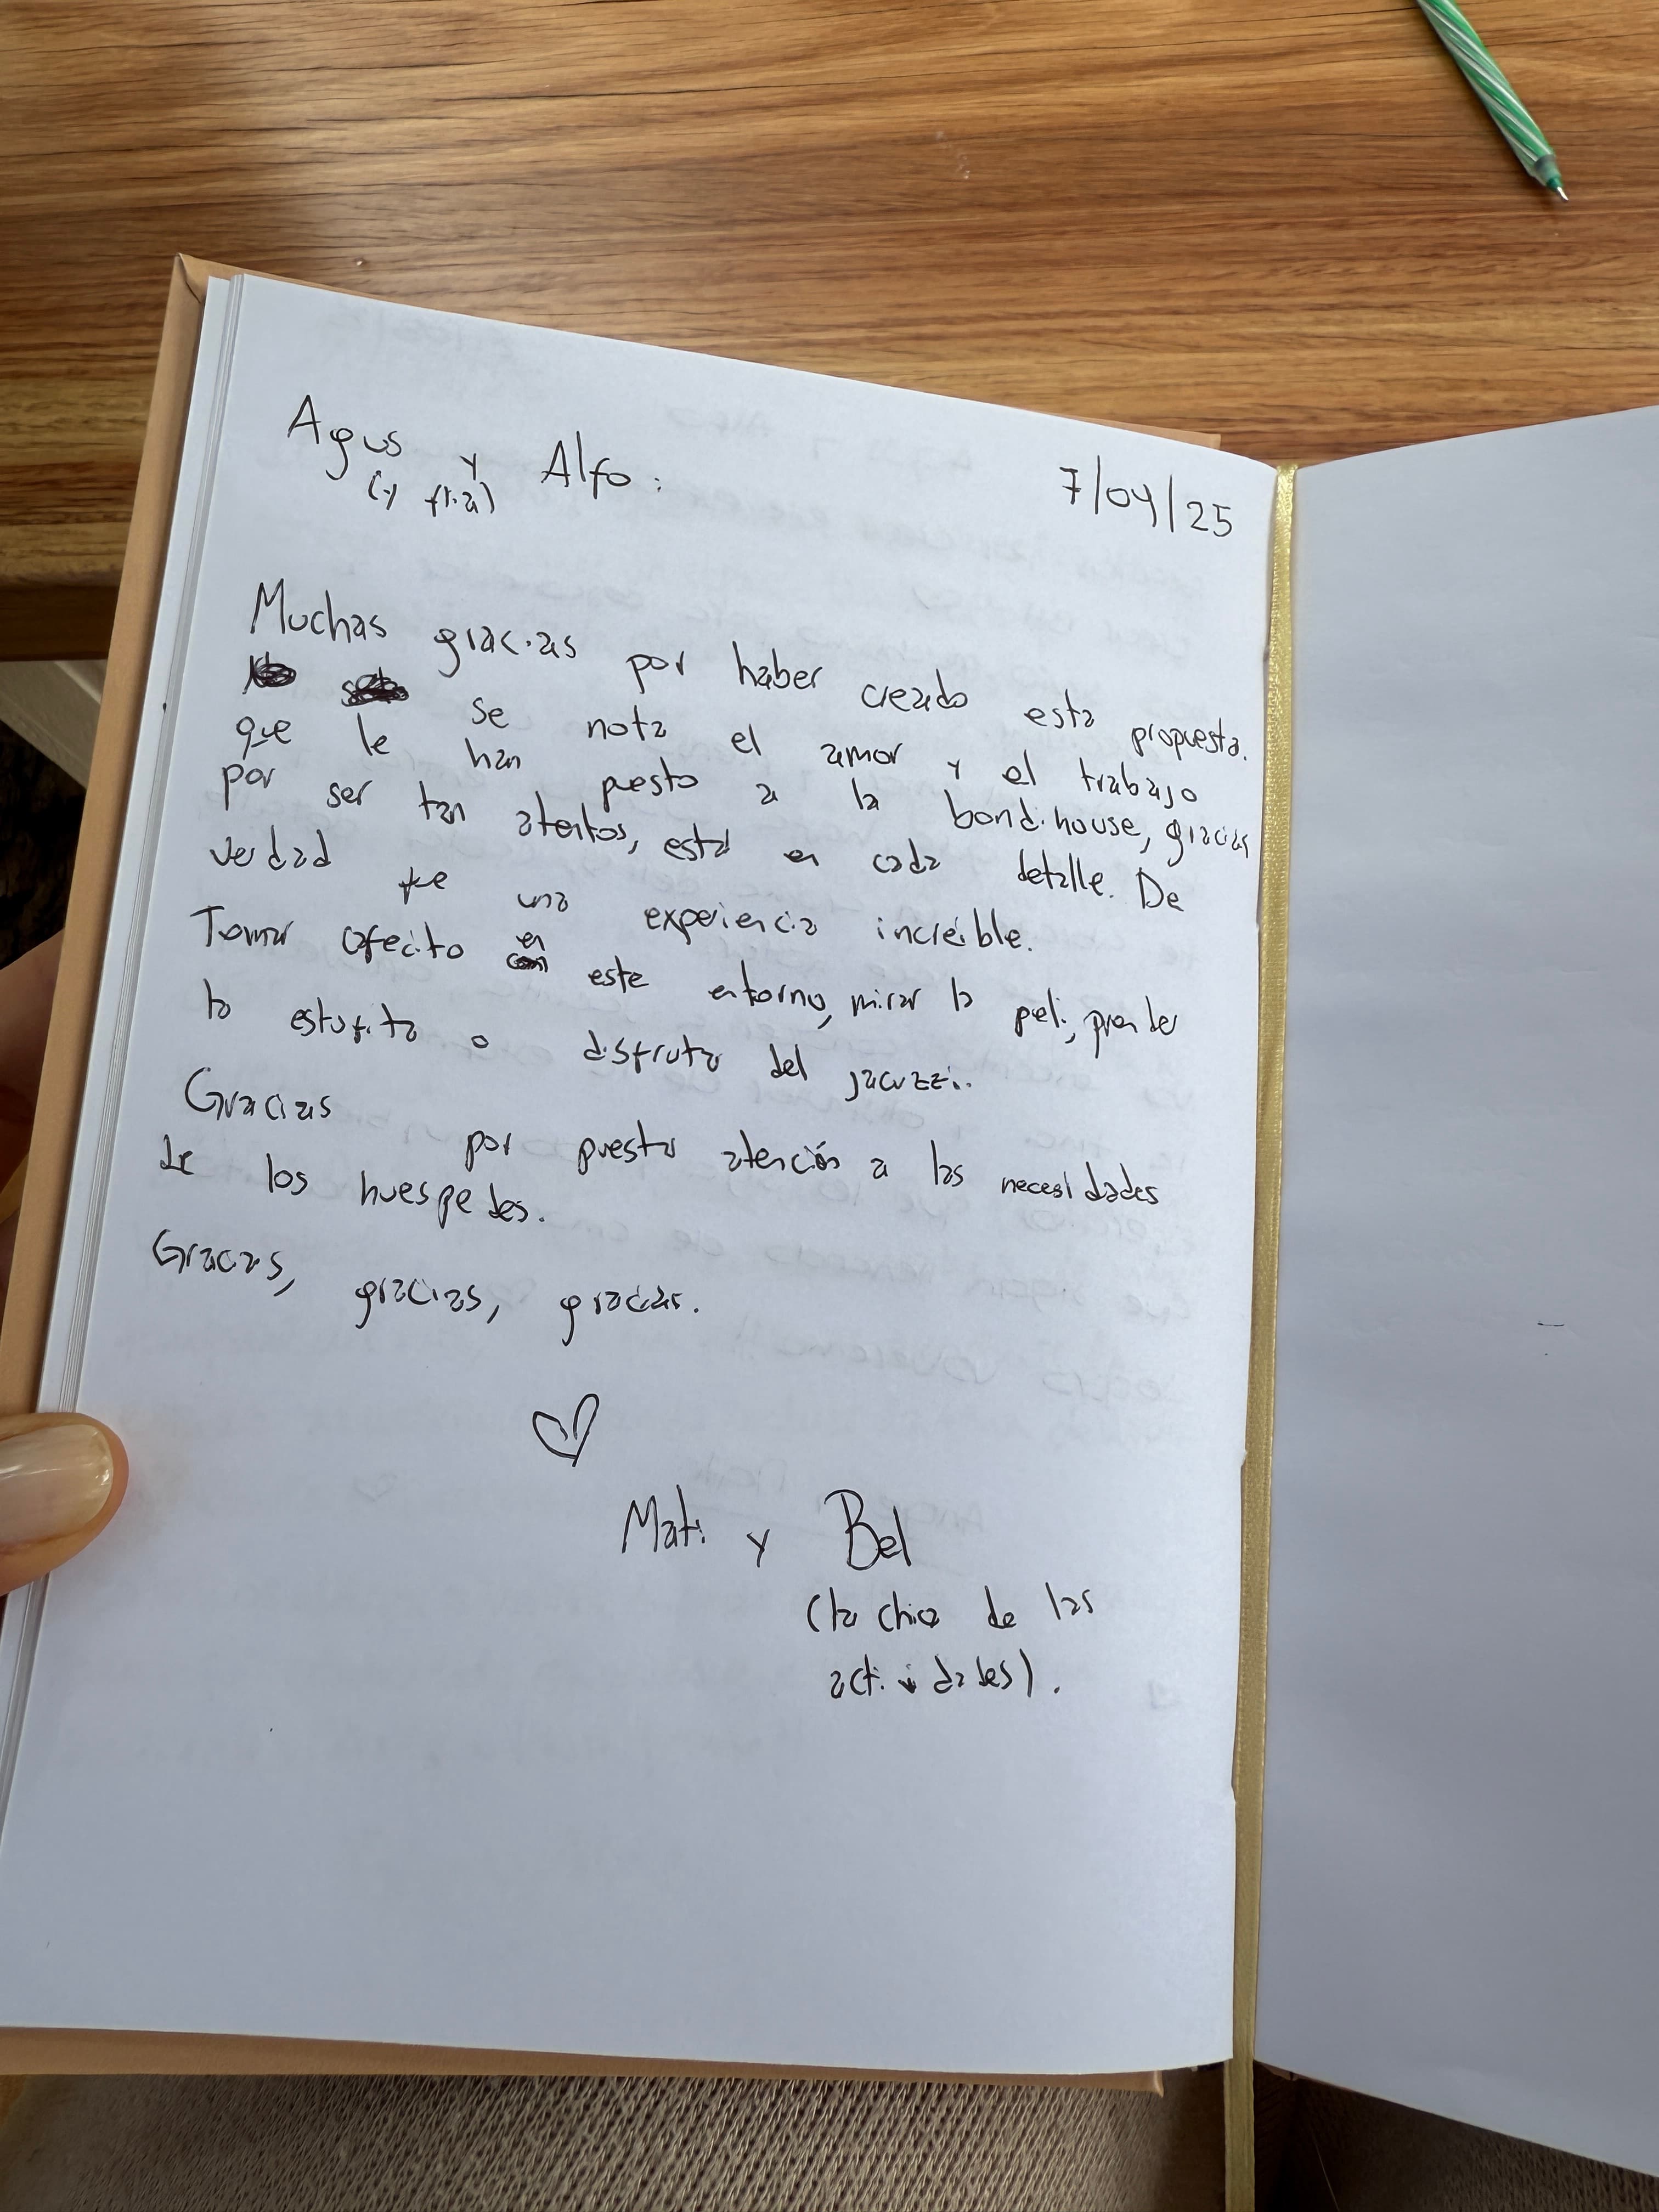 Agus y Alfo: 7/04/25
(y flia)
Muchas gracias por haber creado esta propuesta.
se nota el amor y el trabajo
que le han puesto a la bondihouse, gracias
por ser tan atentos, está en cada detalle. De
verdad fue una experiencia increíble.
Tomar cafecito en este entorno, mirar la peli, prender
la estufita o disfrutar del jacuzzi..
Gracias por prestar atención a las necesidades
de los huespedes.
Gracias, gracias, gracias.
Mati y Bel
(la chica de las
actividades).